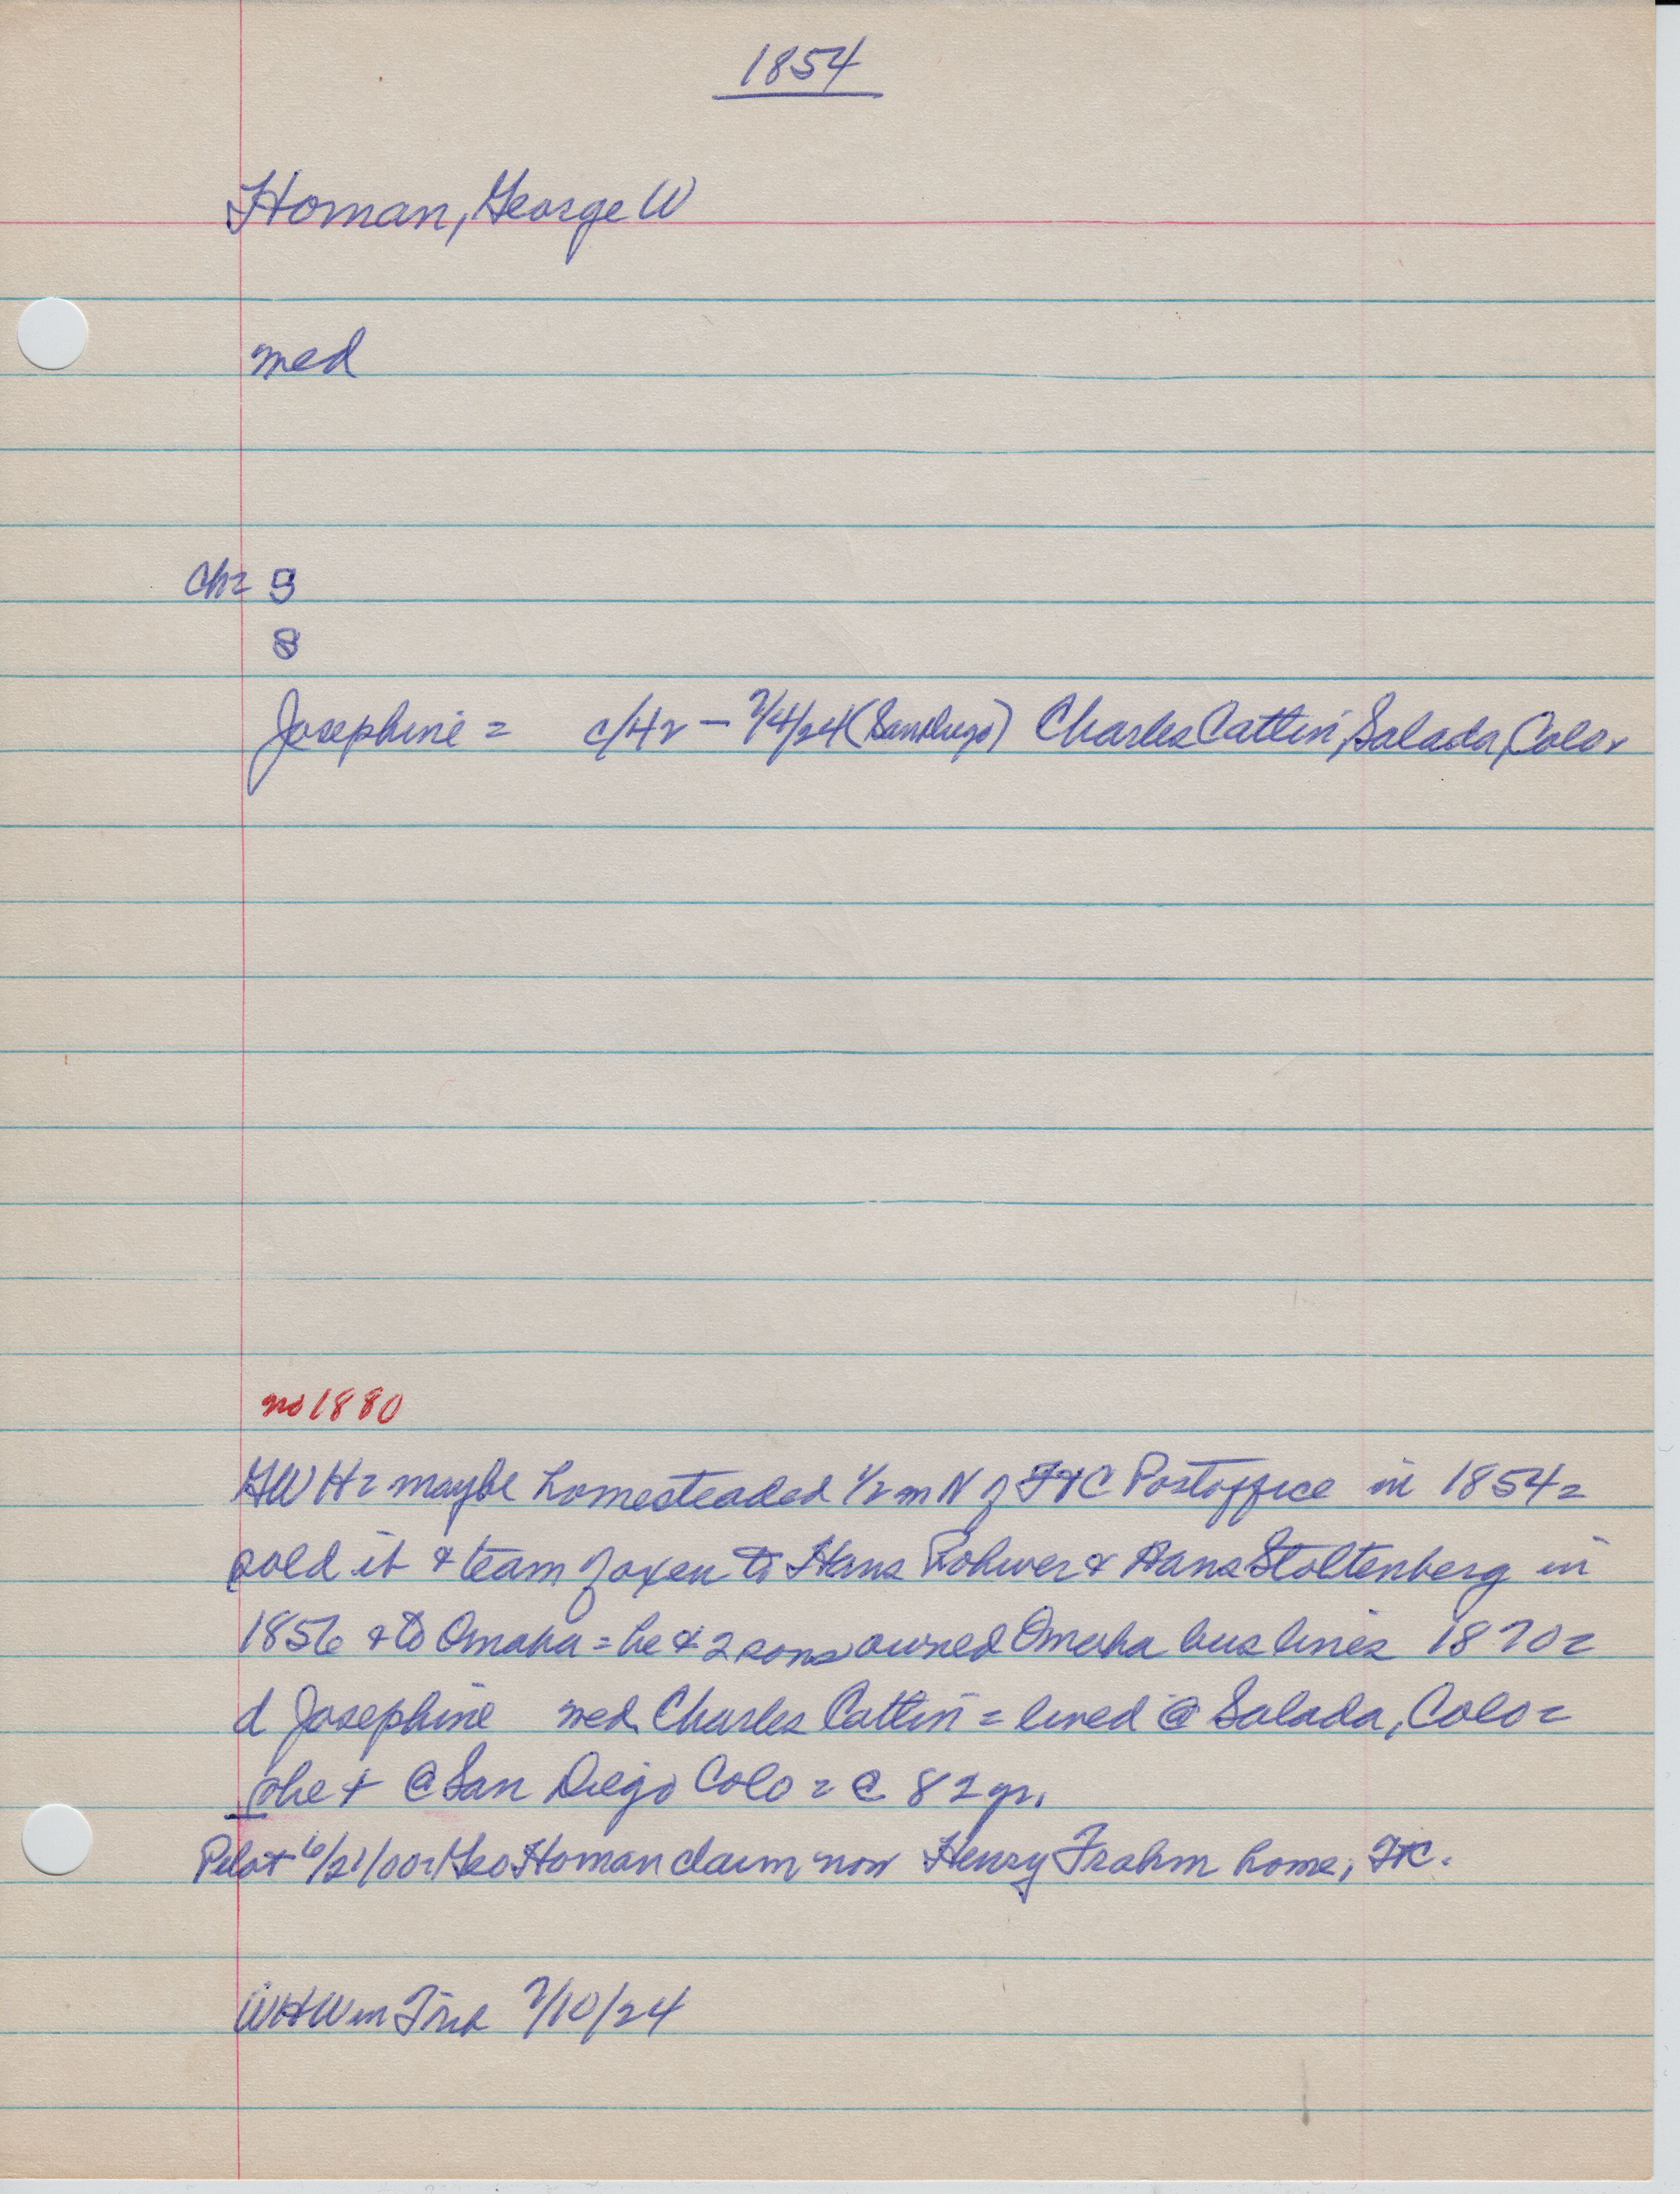 1854
Homan, George W
med
Ch= S
S
Josephine = c/42 – 7/4/24 (San Diego) Charles Catlin, Salada, Colo.
no 1880
GWH = maybe homesteaded 1/2 m N of Ft C Postoffice in 1854 =
sold it & team of oxen to Hans Rohwer & Hans Stoltenberg in
1856 & to Omaha = he & 2 sons owned Omaha bus lines 1870 =
d Josephine med Charles Catlin = lived @ Salada, Colo =
she + @ San Diego Colo = @ 82 yr.
Pilot 6/21/00 = Geo Homan claim now Henry Frahm home, Ft C.
WHW in 7/10/24